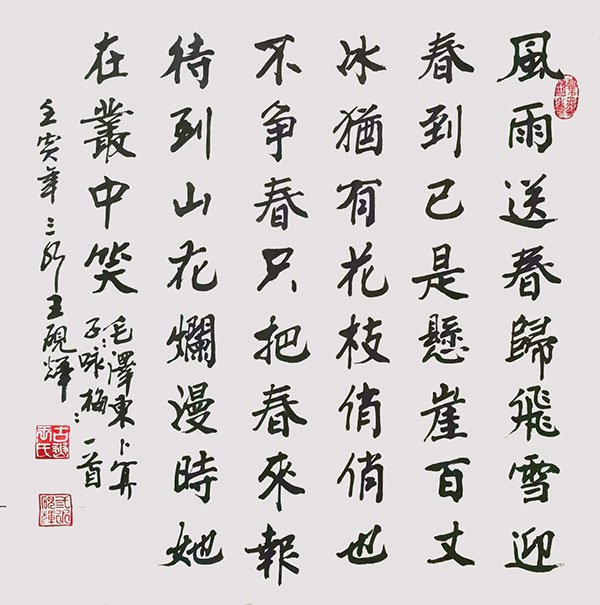 風雨送春歸飛雪迎
春到已是懸崖百丈
冰猶有花枝俏俏也
不争春只把春來報
待到山花爛漫時她
在叢中笑
毛澤東卜算
子:咏梅:一首
壬寅年三郎王硯輝